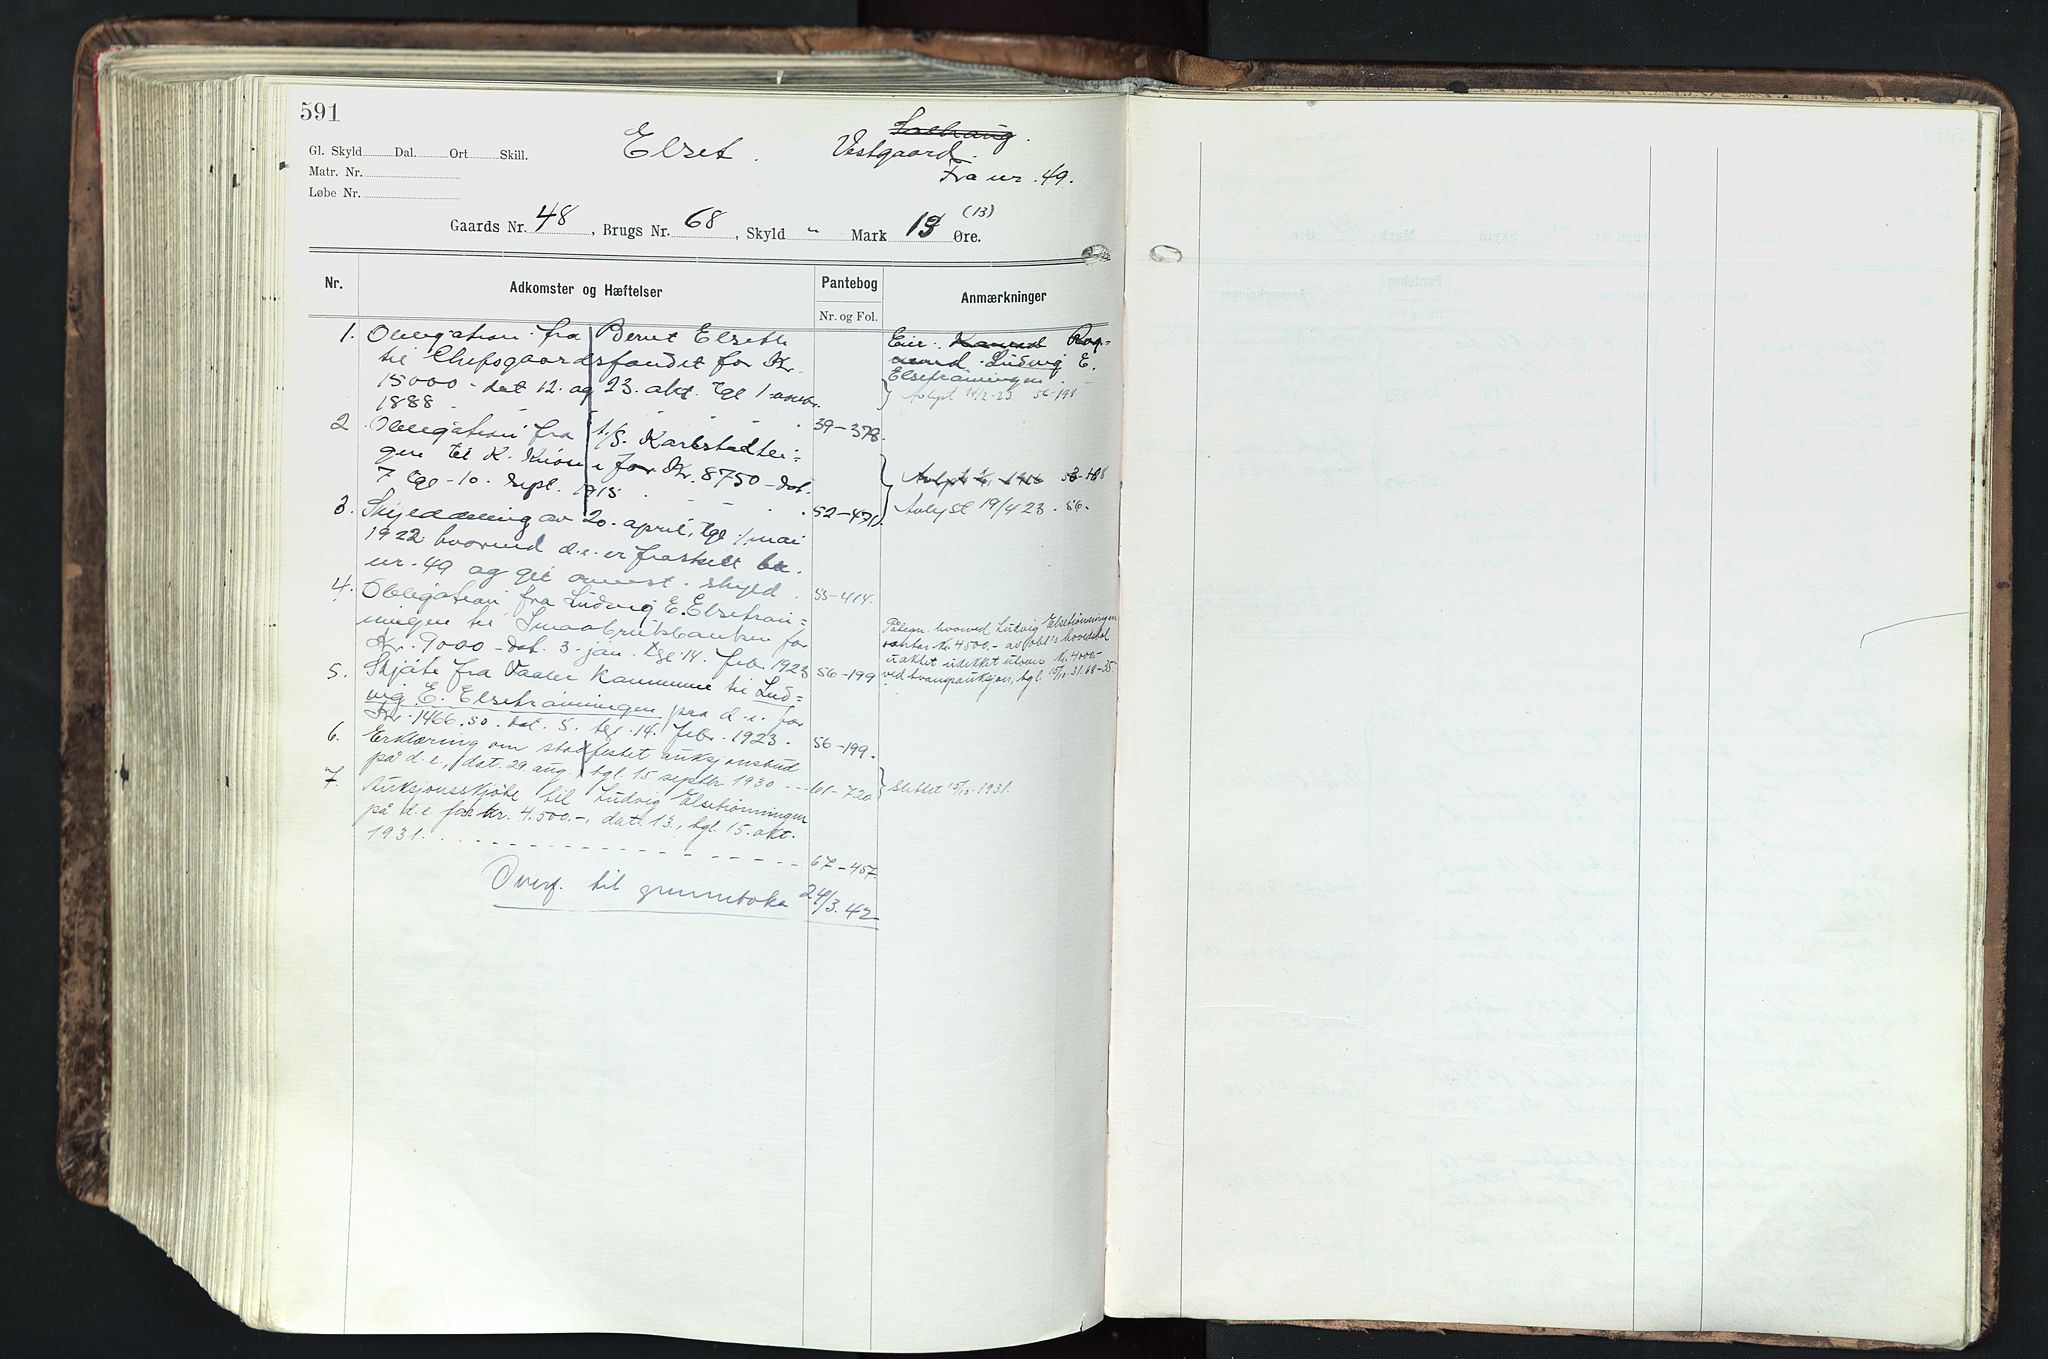 591
Gl. Skyld Dal. Ort Skill.
Matr. Nr.
Løbe Nr.
Elset. Vestgaard.
Fra nr. 49.
Gaards Nr. 48, Brugs Nr. 68, Skyld " Mark 13 Øre.
(13)
Nr.
Adkomster og Hæftelser
Pantebog
Nr. og Fol.
Anmærkninger
1. Obligation fra Bernt Elseth
til Chefsgaardsfondet for Kr.
15000 - dat 12. og 23. okt. tgl 1 novbr.
1888 39-378.
2. Obligation fra A/S. Karlstadtei=
gen til K. Knione for Kr. 8750 - dat.
7 tgl - 10. sept. 1915. 52-471.
3. Skylddeling av 20. april, tgl 1 mai
1922 hvorved d.e. er fraskilt br.
nr. 49 og git anvist skyld. 55-414.
4. Obligation fra Ludvig E. Elsetrøn=
ningen til Smaabrukbanken for
Kr. 9000 - dat. 3. jan. tgl. 14. febr. 1923 56-199
5. Skjøte fra Vaaler Kommune til Lud=
vig E. Elsetrønningen paa d.e. for
Kr. 1466.50. dat. 5. tgl. 14. febr. 1923. 56-199.
6. Erklæring om stadfestet auksjonsbud
på d.e., dat. 29 aug., tgl. 15. septbr. 1930 --- 61-720
7. Auksjonsskjøte til Ludvig Elsetrønningen
på d.e. for kr. 4.500.-, dat. 13., tgl. 15. okt.
1931. 67-457.
Overf. til grunnboka 24/3.42
Eier:
Ludvig E.
Elsetrønningen
Avlyst 14/2-23 56-198
Avlyst 1916 53-188
Avlyst 19/4 23. 56.
Påtegn. hvorved Ludvig Elsetrønningen
vantar kr. 4500.- av obl's hovedstol
uaktet udekket utover kr. 4000.-
ved tvangsauksjon, tgl. 15/10.31. 68-35.
slettet 15/10-1931.